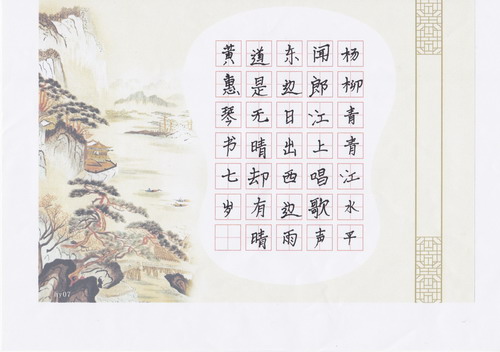 杨柳青青江水平
闻郎江上唱歌声
东边日出西边雨
道是无晴却有晴
黄惠琴书七岁